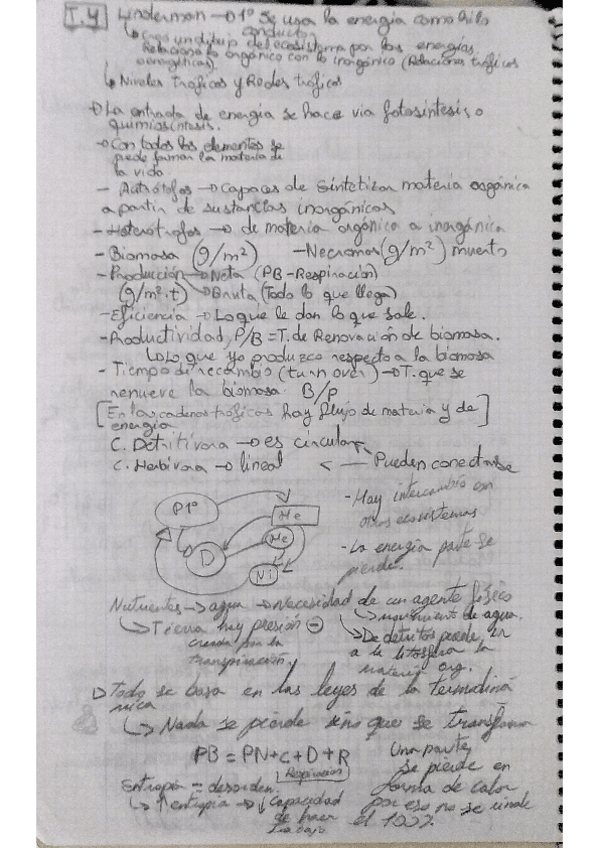 T.4 Linderman → 1º Se usa la energía como hilo
conducto
↳ Creó un dibujo del ecosistema por las energías.
Relaciona lo orgánico con lo inorgánico (Relaciones tróficas
energéticas).
↳ Niveles tróficos y Redes tróficas
→ La entrada de energía se hace vía fotosíntesis o
quimiosíntesis.
→ Con todos los elementos se
puede formar la materia de
la vida.
- Autótrofos → capaces de sintetizar materia orgánica
a partir de sustancias inorgánicas
- Heterótrofos → de materia orgánica a inorgánica
- Biomasa (g/m²) - Necromasa (g/m²) muerto
- Producción → Neta (PB - Respiración)
(g/m²·t) → Bruta (Todo lo que llega)
- Eficiencia → Lo que le dan lo que sale.
- Productividad, P/B = T. de Renovación de biomasa.
↳ Lo que yo produzco respecto a la biomasa
- Tiempo de recambio (turn over) → T. que se
renueve la biomasa. B/P
[En las cadenas tróficas hay flujo de materia y de]
energía
C. Detritívora → es circular
C. Herbívora → lineal ← Pueden conectarse
P1º
He
He
D
Ni
- Hay intercambio con
otros ecosistemas
- La energía parte se
pierde.
Nutrientes → agua → Necesidad de un agente físico
↳ movimiento de agua.
↳ Tierra hay presión ⊖
creada por la
transpiración.
↳ De detritos puede ir
a la litosfera la
materia org.
→ Todo se basa en las leyes de la termodiná
mica
↳ Nada se pierde sino que se transforma
PB = PN + C + D + R
Respiración
Una parte
se pierde en
forma de calor
por eso no se rinde
el 100%.
Entropía = desorden.
↳ ↑ entropía → ↓ Capacidad
de hacer
trabajo